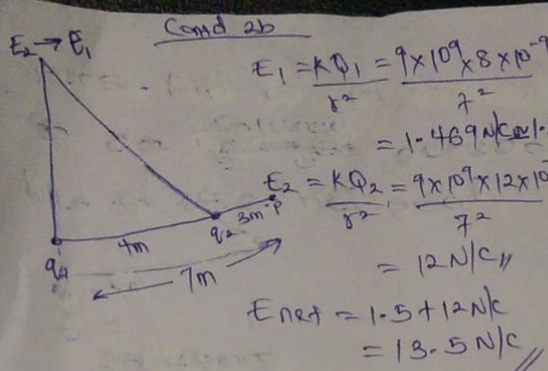 Contd 2b
E₂ → E₁
E₁ = KQ₁/r² = 9×10⁹×8×10⁻⁹/7²
= 1.469N/C≈1.
E₂ = KQ₂/r² = 9×10⁹×12×10/7²
= 12N/C//
Enet = 1.5+12N/C
= 13.5N/C//
q₁
4m
q₂
3m
P
7m